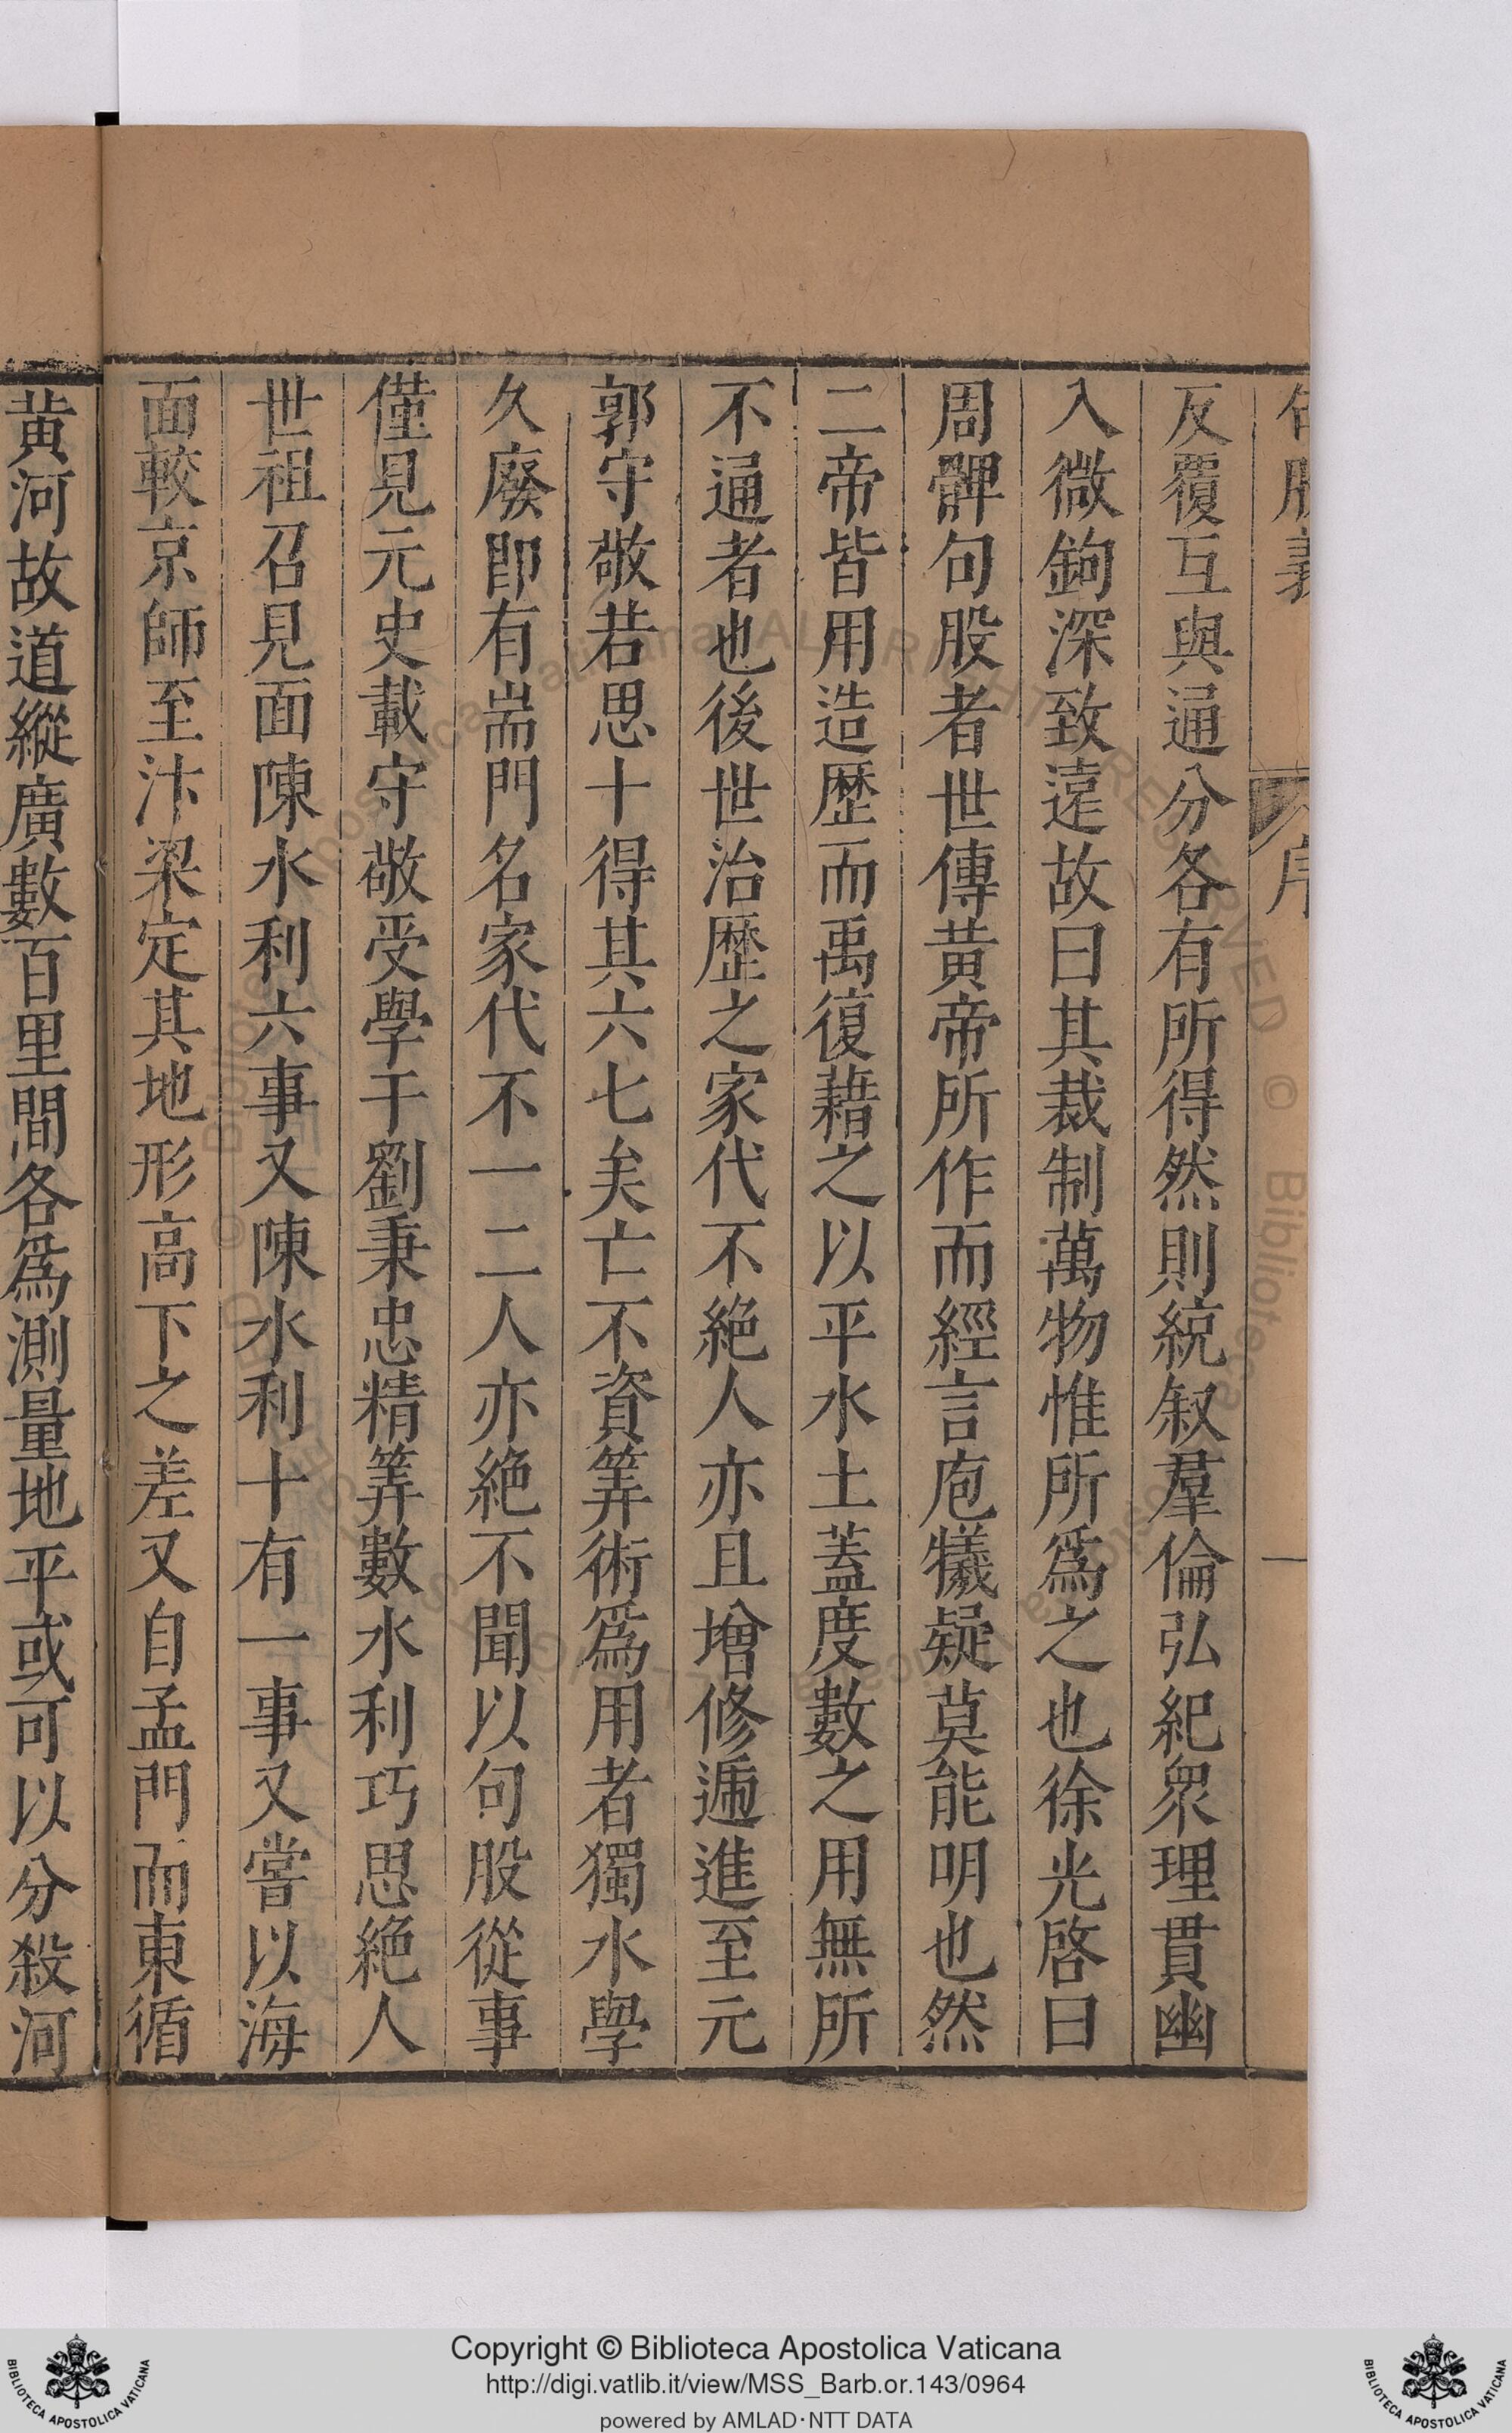 句股義 序 一
反覆互與通分各有所得然則統叙羣倫弘紀衆理貫幽
入微鉤深致遠故曰其裁制萬物惟所爲之也徐光啓曰
周髀句股者世傳黃帝所作而經言庖犧疑莫能明也然
二帝皆用造歷而禹復藉之以平水土蓋度數之用無所
不通者也後世治歷之家代不絕人亦且增修遞進至元
郭守敬若思十得其六七矣亡不資筭術爲用者獨水學
久廢卽有耑門名家代不一二人亦絕不聞以句股從事
僅見元史載守敬受學于劉秉忠精筭數水利巧思絕人
世祖召見面陳水利六事又陳水利十有一事又嘗以海
面較京師至汴梁定其地形高下之差又自孟門而東循
黃河故道縱廣數百里間各爲測量地平或可以分殺河
Copyright © Biblioteca Apostolica Vaticana
http://digi.vatlib.it/view/MSS_Barb.or.143/0964
powered by AMLAD·NTT DATA
BIBLIOTECA APOSTOLICA VATICANA
BIBLIOTECA APOSTOLICA VATICANA